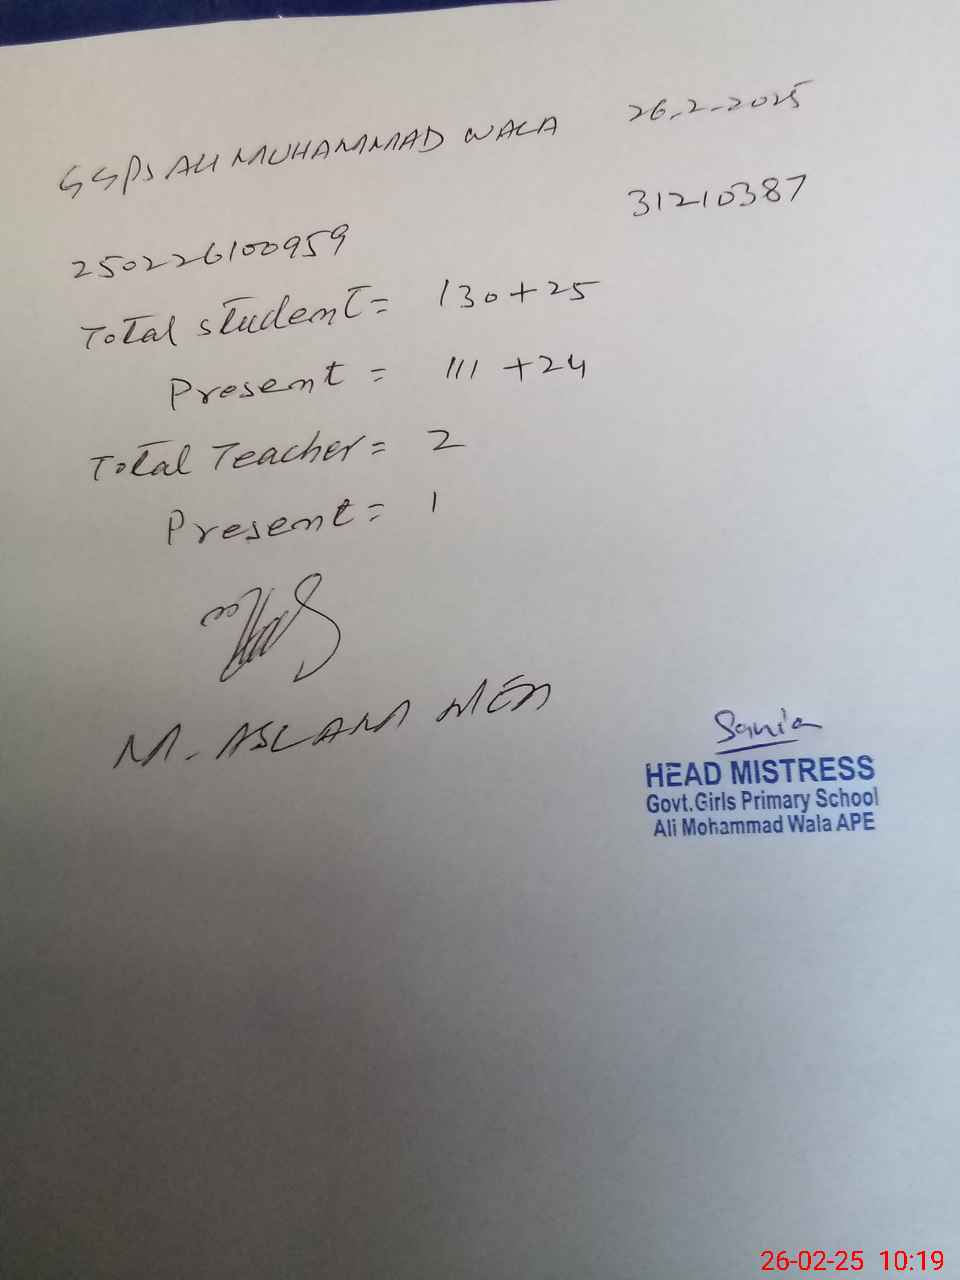 GGPS ALI MUHAMMAD WALA 26-2-2025
250226100959 31210387
Total student = 130+25
Present = 111+24
Total Teacher = 2
Present = 1
M. ASLAM MEA
Sania
HEAD MISTRESS
Govt.Girls Primary School
Ali Mohammad Wala APE
26-02-25 10:19